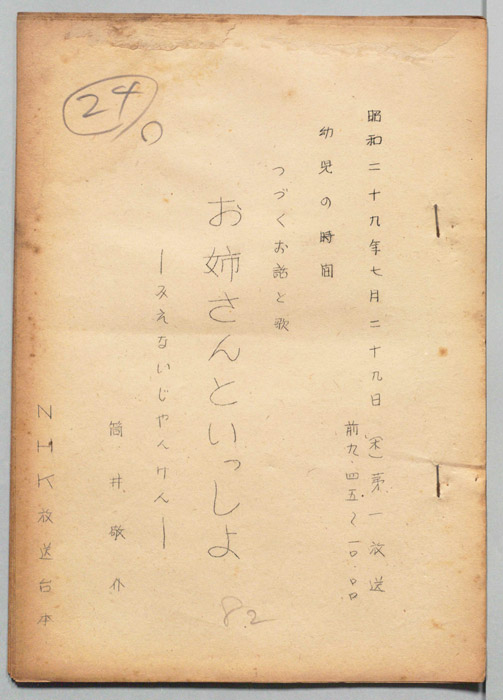 24
昭和二十九年七月二十九日(木)第一放送
前九・四五~一〇・〇〇
幼児の時間
つづくお話と歌
お姉さんといっしよ
―みえないじゃんけん―
筒井敬介
NHK放送台本
82